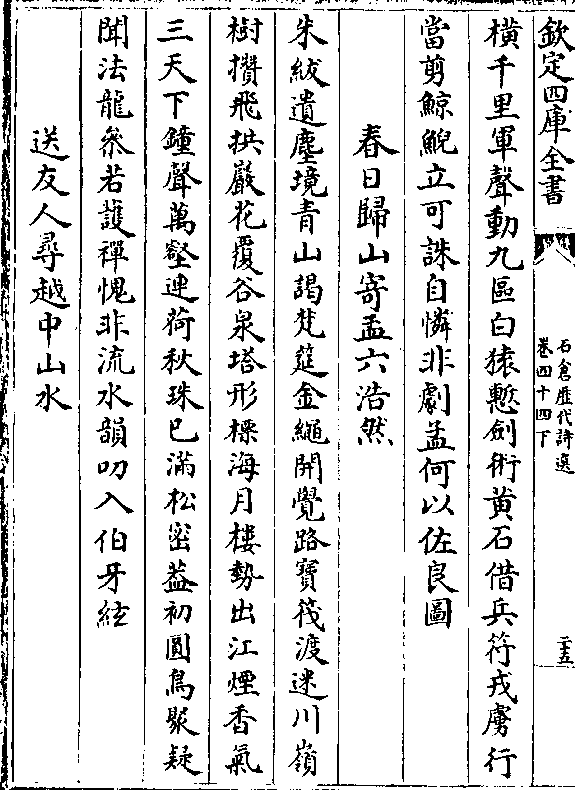 欽定四庫全書
石倉歴代詩選
卷四十四下
二五
橫千里軍聲動九區白猿慙劍術黄石借兵符戎虜行
當剪鯨鯢立可誅自憐非劇孟何以佐良圖
春日歸山寄孟六浩然
朱紱遺塵境青山謁梵筵金繩開覺路寶筏渡迷川嶺
樹攢飛拱巖花覆谷泉塔形標海月樓勢出江煙香氣
三天下鐘聲萬壑連荷秋珠已滿松密葢初圓鳥聚疑
聞法龍參若護禪愧非流水韻叨入伯牙絃
送友人尋越中山水